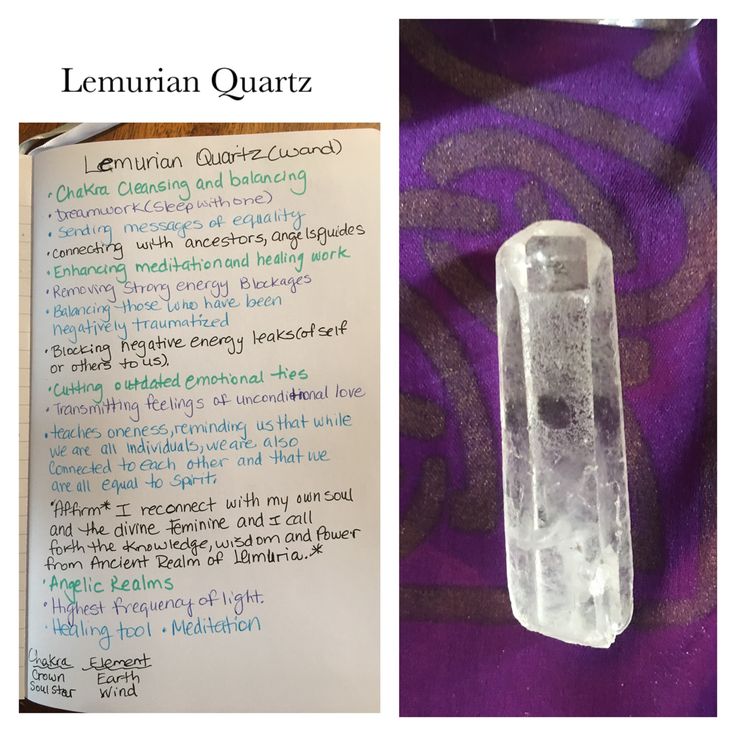 Lemurian Quartz
Lemurian Quartz (wand)
• Chakra Cleansing and balancing
• Dreamwork (sleep with one)
• Sending messages of equality
• connecting with ancestors, angels, guides
• Enhancing meditation and healing work
• Removing Strong energy Blockages
• Balancing those who have been
negatively traumatized
• Blocking negative energy leaks (of self
or others to us).
• Cutting outdated emotional ties
• Transmitting feelings of unconditional love
• teaches oneness, reminding us that while
we are all individuals, we are also
connected to each other and that we
are all equal to Spirit.
*Affirm* I reconnect with my own soul
and the divine Feminine and I call
forth the Knowledge, wisdom and Power
from Ancient Realm of Lemuria.*
• Angelic Realms
• Highest frequency of light.
• Healing tool • Meditation
Chakra Element
Crown Earth
Soul Star Wind